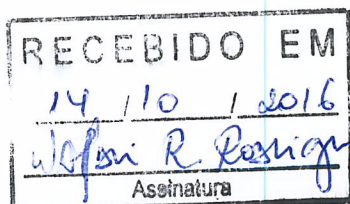 RECEBIDO EM
14 / 10 / 2016
R.
Assinatura